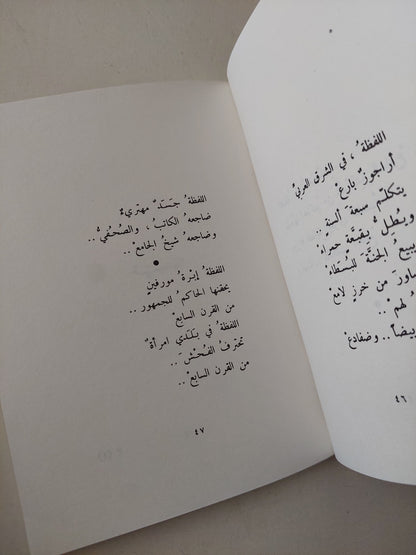 اللفظةُ ، في الشرق العربيْ
أراجوزٌ بارعْ
يتكلّم سبعةَ ألسنةٍ ..
ويطلُّ بقبعَّةٍ حمراءْ
ويبيعُ الجنّةَ للبُسَطاءْ
من خرزٍ لامعْ
لهمْ ..
بيضاً .. وضفادعْ
٤٦
اللفظةُ جَسَدٌ مهتريءٌ
ضاجعه الكاتبُ ، والصُحُفيُّ ..
وضاجعه شيخُ الجامعْ ..
●
اللفظةُ إبرةُ مورفينٍ
يحقنها الحاكمُ للجمهور ..
من القرن السابعْ
اللفظةُ في بَلَدي امرأةٌ
تحترفُ الفُحْشَ ..
من القرن السابعْ ..
٤٧